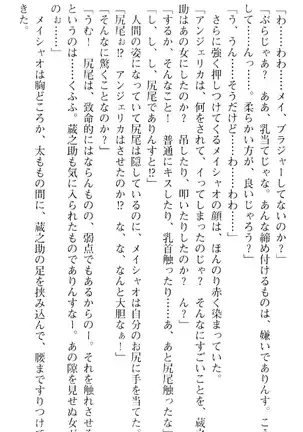 「わ……わわ……メイ、ブラジャーしてないの？」
「ぶらじゃあ？　ああ、乳当てじゃな。あんな締め付けるものは、嫌いでありんす。こ
して……んっ……。柔らかい方が、良いじゃろう？」
「う、うん……そうだけど……わ……わわ……」
さらに強く押しつけてくるメイシャオの顔は、ほんのり赤く染まっていた。
「アンジェリカは、何をされて、イってしまったのじゃ？　そんなにすごいことを、蔵
助はあの女にしたのか？　吊り上げたり、叩いたりしたのか？　ん？」
「するか、そんなこと！　普通にキスしたり、乳首触ったり……あ、あと尻尾触ったな
「し、し、し、尻尾でありんすと!?」
人間の姿になっていて尻尾は隠しているのに、メイシャオは自分のお尻に手を当てた。
「尻尾ぉ!?　アンジェリカはさせたのか!?　な、な、なんと大胆なぁ！」
「そんなに驚くことなのか？」
「うむ！　尻尾は、致命的にはならんものの、弱点でもあるからのー。それを触れさせる
というのは……くふふ。蔵之助も気に入られたものでありんすなー。あの隙を見せぬ女が
のぉ……」
メイシャオは胸どころか、太ももの間に、蔵之助の足を挟み込んで、腰まですりつけて
きた。